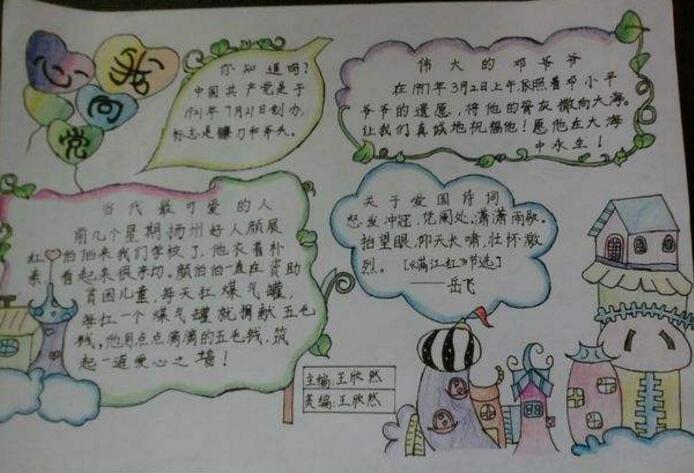 我心向党
你知道吗?
中国共产党是于
1921年7月21日创办,
标志是镰刀和斧头。
伟大的邓爷爷
在1997年3月2日上午,依照着邓小平
爷爷的遗愿,将他的骨灰撒向大海。
让我们真诚地祝福他!愿他在大海
中永生!
当代最可爱的人
前几个星期,扬州好人颜展
红伯伯来我们学校了,他衣着朴
素,看起来很亲切。颜伯伯一直在资助
贫困儿童,每天扛煤气罐,
每扛一个煤气罐就捐献五毛
钱,他用点点滴滴的五毛钱,筑
起一道爱心之墙!
关于爱国诗词
怒发冲冠,凭阑处,潇潇雨歇。
抬望眼,仰天长啸,壮怀激
烈。[《满江红》节选]
——岳飞
主编:王欣然
美编:王欣然